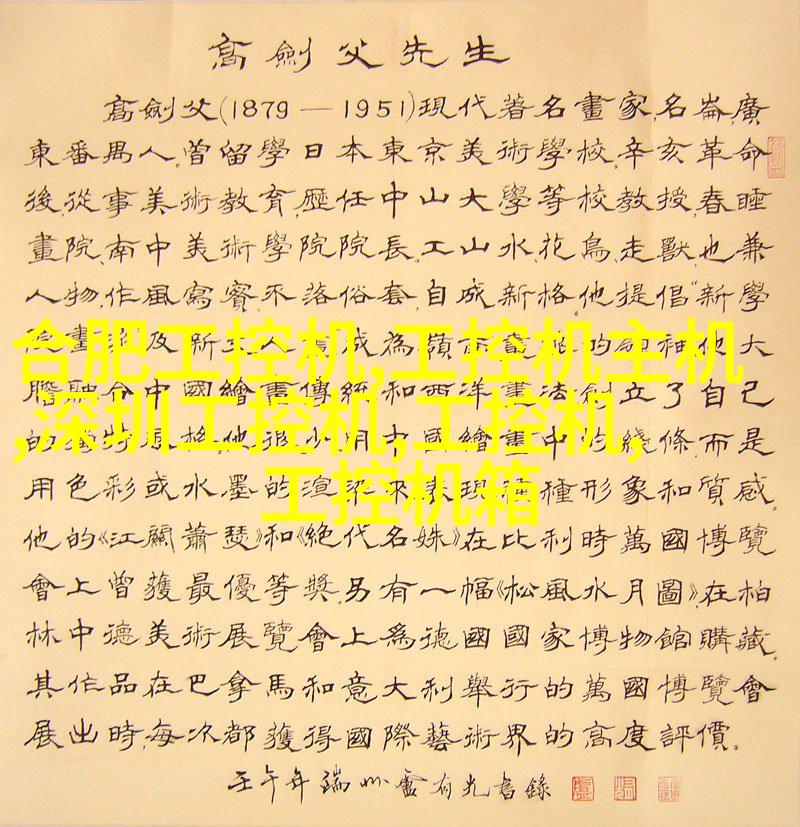 高劍父先生
高劍父(1879—1951)現代著名畫家,名崙,廣
東番禺人。曾留學日本東京美術學校。辛亥革命
後,從事美術教育,歷任中山大學等校教授,春睡
畫院、南中美術學院院長。工山水、花鳥、走獸,也兼
人物,作風寫實,不落俗套,自成新格。他提倡"新學
畫 及新 人 成為嶺南畫派的 領袖。他大
膽融合中國繪畫傳統和西洋畫法,創立了自己
的獨特風格。他很少用中國繪畫中的綫條,而是
用色彩或水墨的渲染來表現各種形象和質感。
他的《江關蕭瑟》和《絕代名姝》在比利時萬國博覽
會上曾獲最優等獎。另有一幅《松風水月圖》,在柏
林中德美術展覽會上爲德國國家博物館購藏。
其作品在巴拿馬和意大利舉行的萬國博覽會
展出時,每次都獲得國際藝術界的高度評價。
壬午年端州盧有光書錄
合肥工控机,工控机主机
,深圳工控机,工控机,
工控机箱